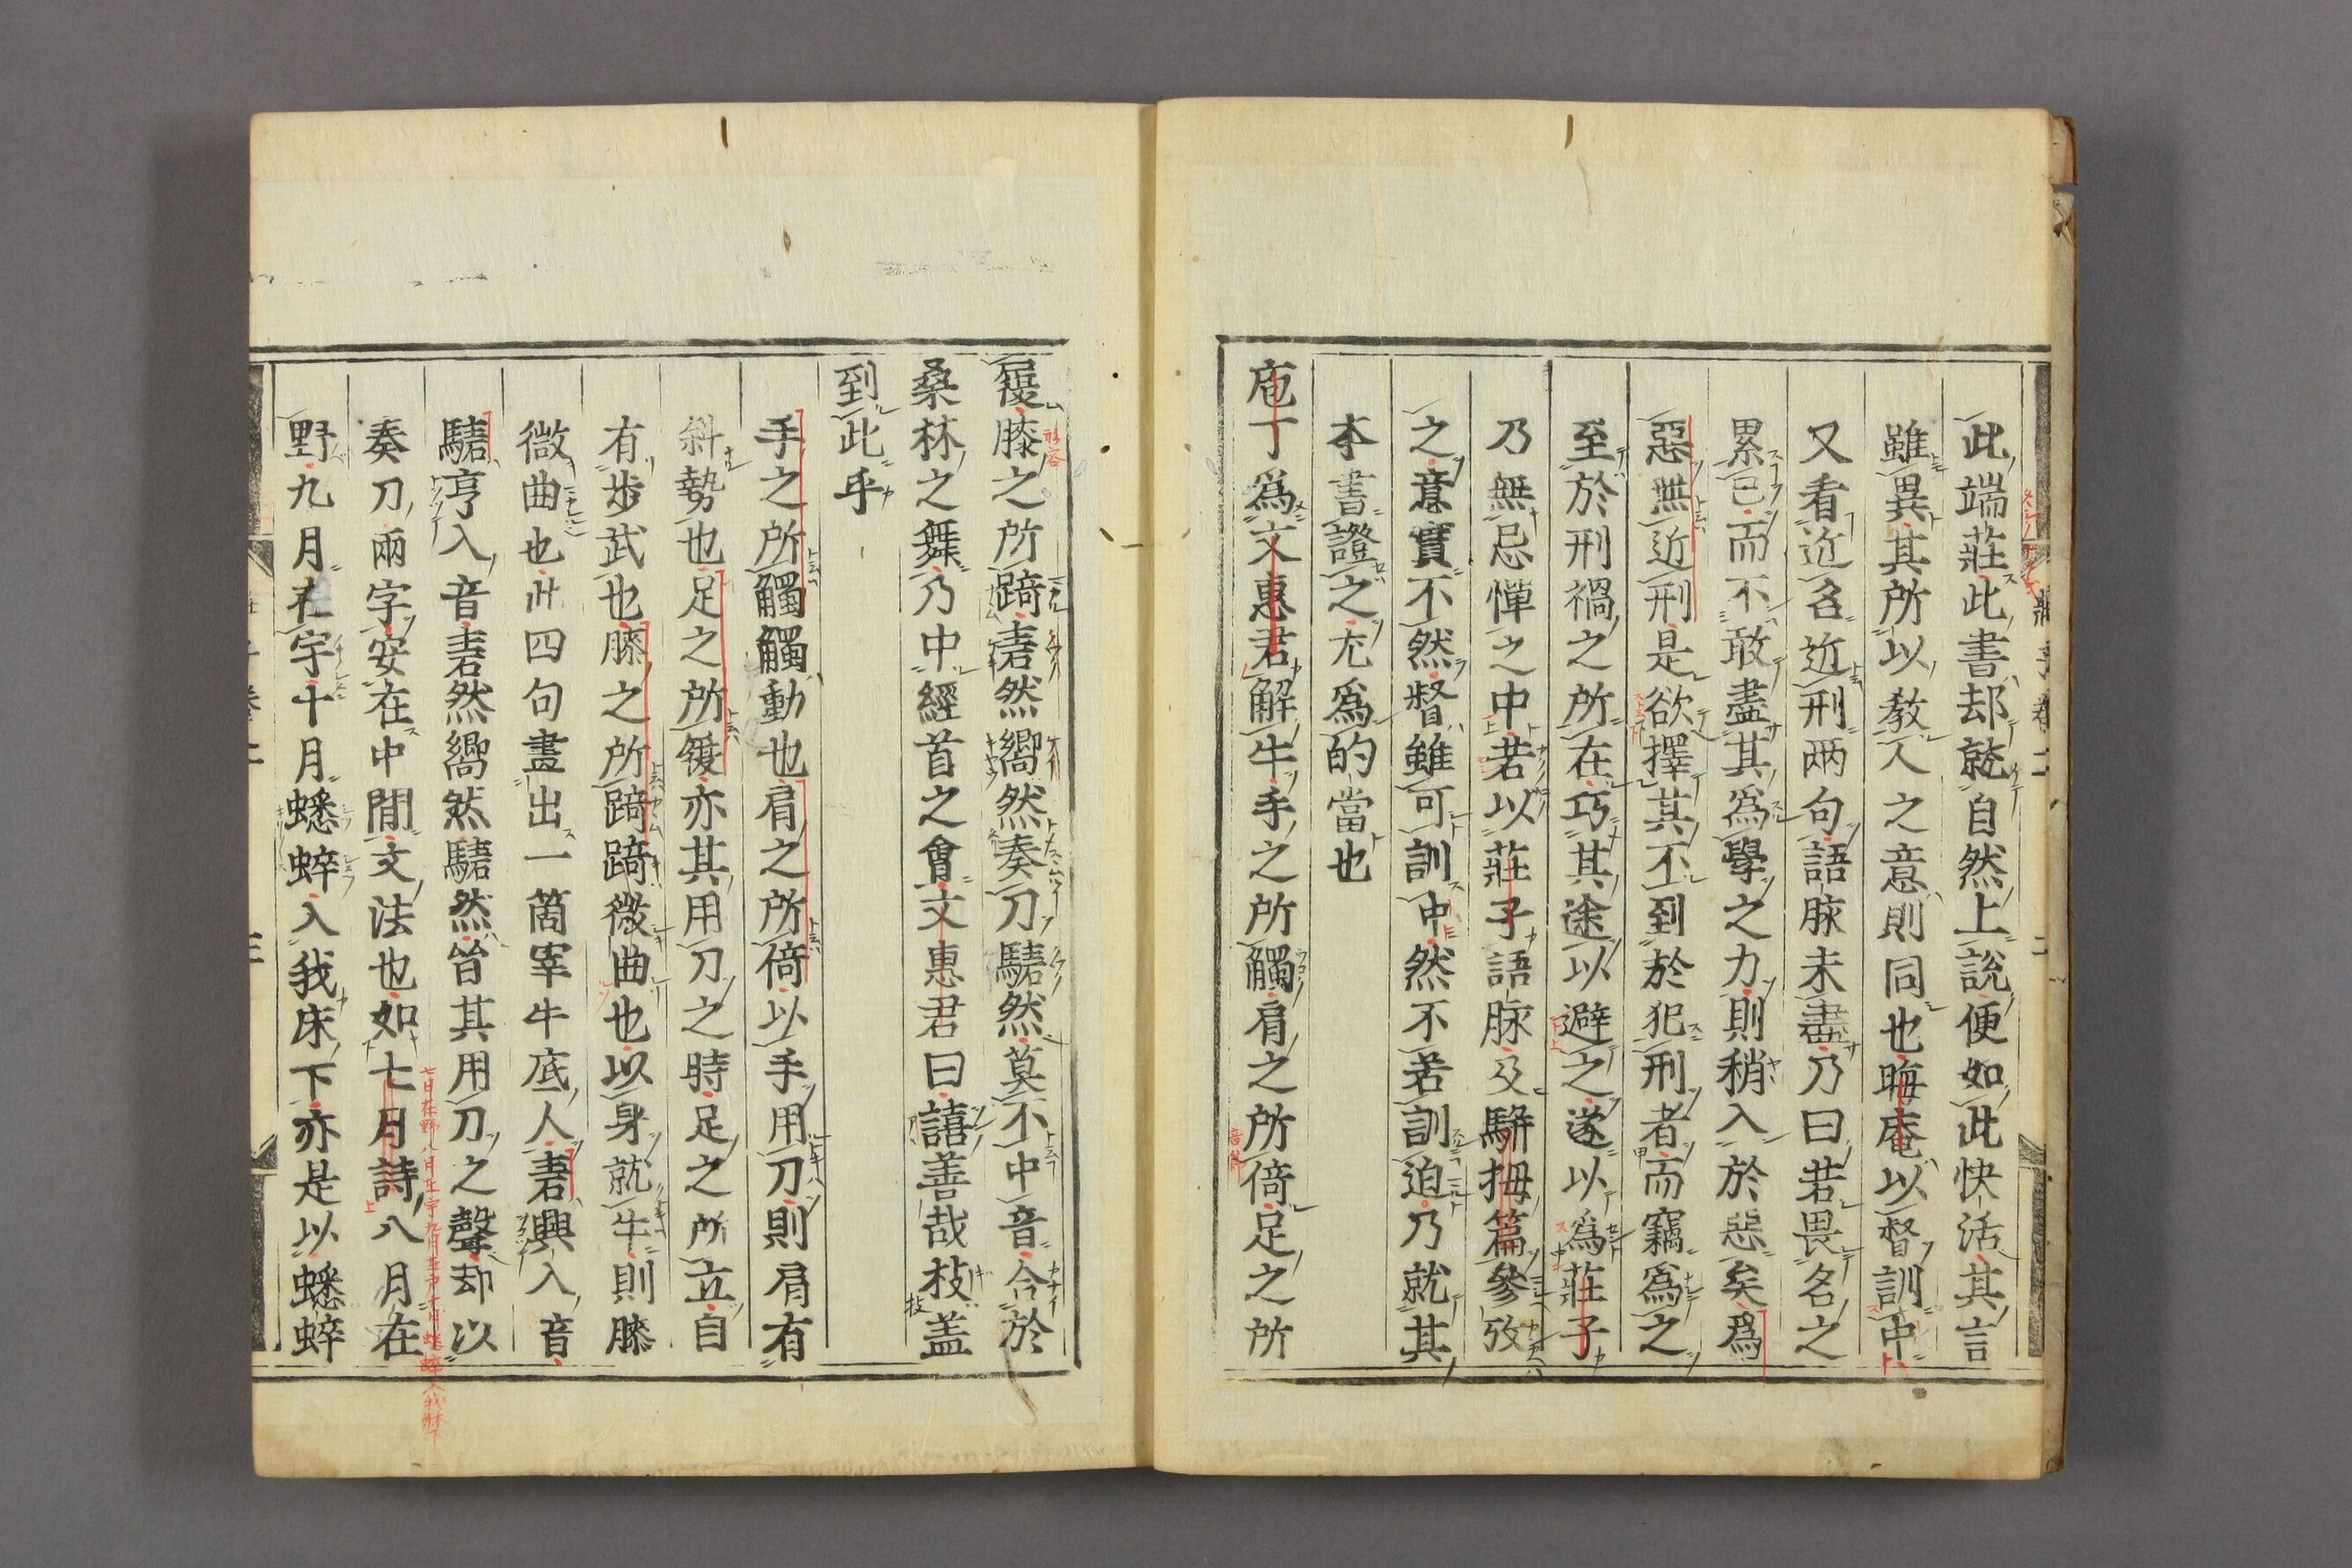 此端莊此書却就自然上說便如此快活其言
雖異其所以教人之意則同也晦庵以督訓中
又看近名近刑兩句語脉未盡乃曰若畏名之
累己而不敢盡其爲學之力則稍入於惡矣爲
惡無近刑是欲擇其不到於犯刑者而竊爲之
至於刑禍之所在巧其途以避之遂以爲莊子
乃無忌憚之中若以莊子語脉及駢拇篇參攷
之意實不然督雖可訓中然不若訓迫乃就其
本書證之尤爲的當也
庖丁爲文惠君解牛手之所觸肩之所倚足之所
履膝之所踦砉然嚮然奏刀騞然莫不中音合於
桑林之舞乃中經首之會文惠君曰譆善哉技盖
到此乎
手之所觸觸動也肩之所倚以手用刀則肩有
斜勢也足之所履亦其用刀之時足之所立自
有步武也膝之所踦踦微曲也以身就牛則膝
微曲也此四句畫出一箇宰牛底人砉與入音
騞亨入音砉然嚮然騞然皆其用刀之聲却以
奏刀兩字安在中間文法也如七月詩八月在
野九月在宇十月蟋蟀入我床下亦是以蟋蟀